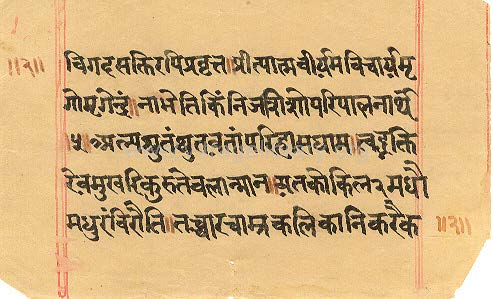 १
॥२॥ विगतसक्तिरपिप्रवृत्त॥प्रीत्यात्मवीर्यमविचार्यमृ
गोमृगेन्द्रं॥नाभेतिकिंनिजशिशोपरिपालनार्थं
॥५॥अल्पश्रुतंश्रुतवतांपरिहासधाम॥त्वद्भक्ति
रेवमुखरिकुरुतेवलान्मान॥यतकोकिल२मधौ
मधुरंविरौति॥तच्चारचाम्रकलिकानिकरैक ॥२॥